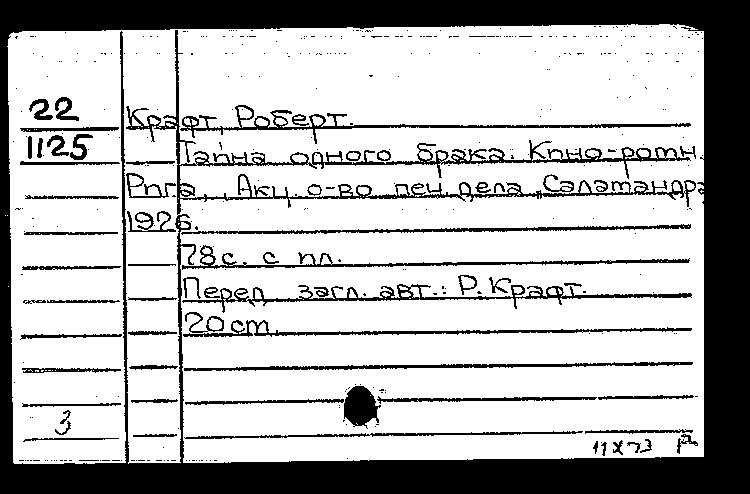 22
1125
Крафт, Роберт.
Тайна одного брака. Кино-ротн.
Рига, Акц. о-во печ. дела „Саламандра
1926.
78 с. с ил.
Перед загл. авт.: Р. Крафт.
20 cm.
3
11 X 73